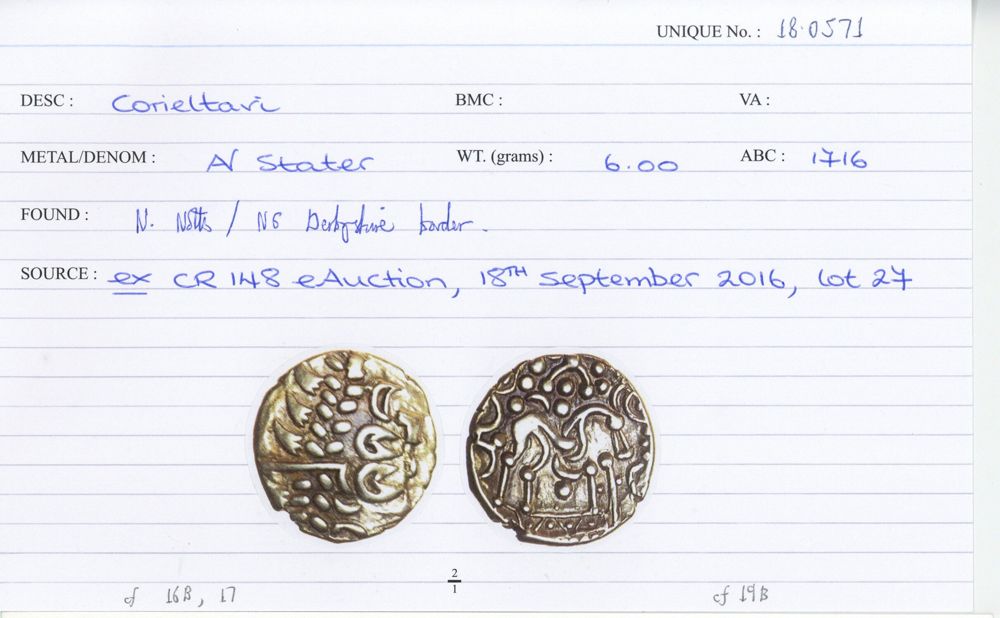 UNIQUE No. : 18.0571
DESC : Corieltavi BMC : VA :
METAL/DENOM : AV Stater WT. (grams) : 6.00 ABC : 1716
FOUND : N. Notts / NE Derbyshire border.
SOURCE : ex CR 148 eAuction, 18TH September 2016, lot 27
2
1
cf 16B, 17 cf 19B